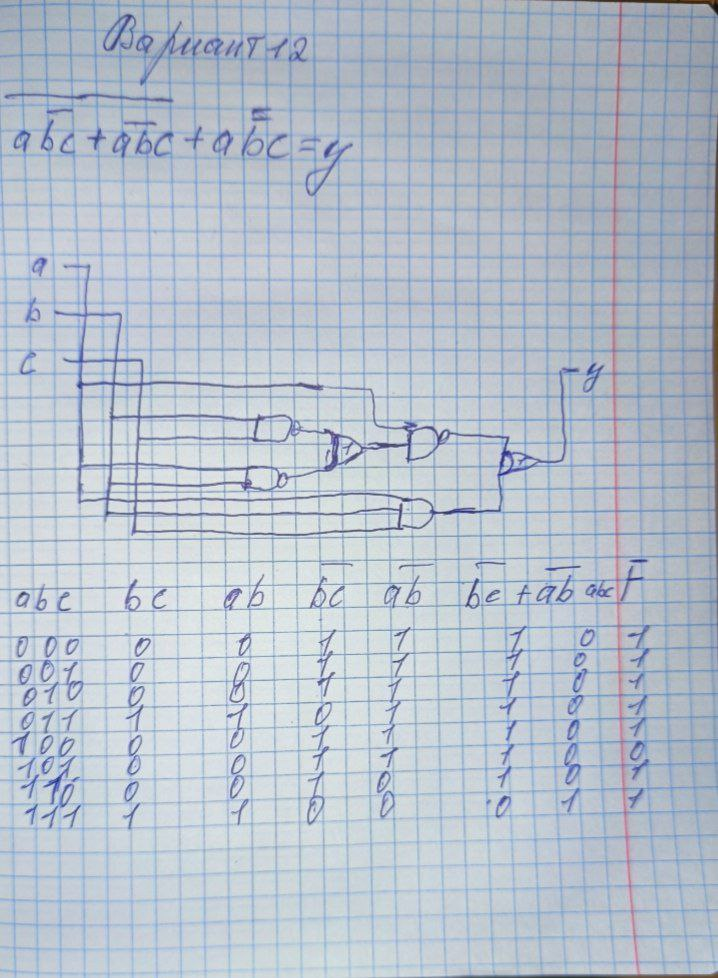 Вариант 12
a b̅c̅ + a̅b̅ c + a b̿ c = y
a
b
c
y
1
1
abc bc ab b̅c̅ a̅b̅ b̅c̅ + a̅b̅ abc F̅
000 0 0 1 1 1 0 1
001 0 0 1 1 1 0 1
010 0 0 1 1 1 0 1
011 1 1 0 1 1 0 1
100 0 0 1 1 1 0 1
101 0 0 1 1 1 0 0
110 0 0 1 0 1 0 1
111 1 1 0 0 0 1 1